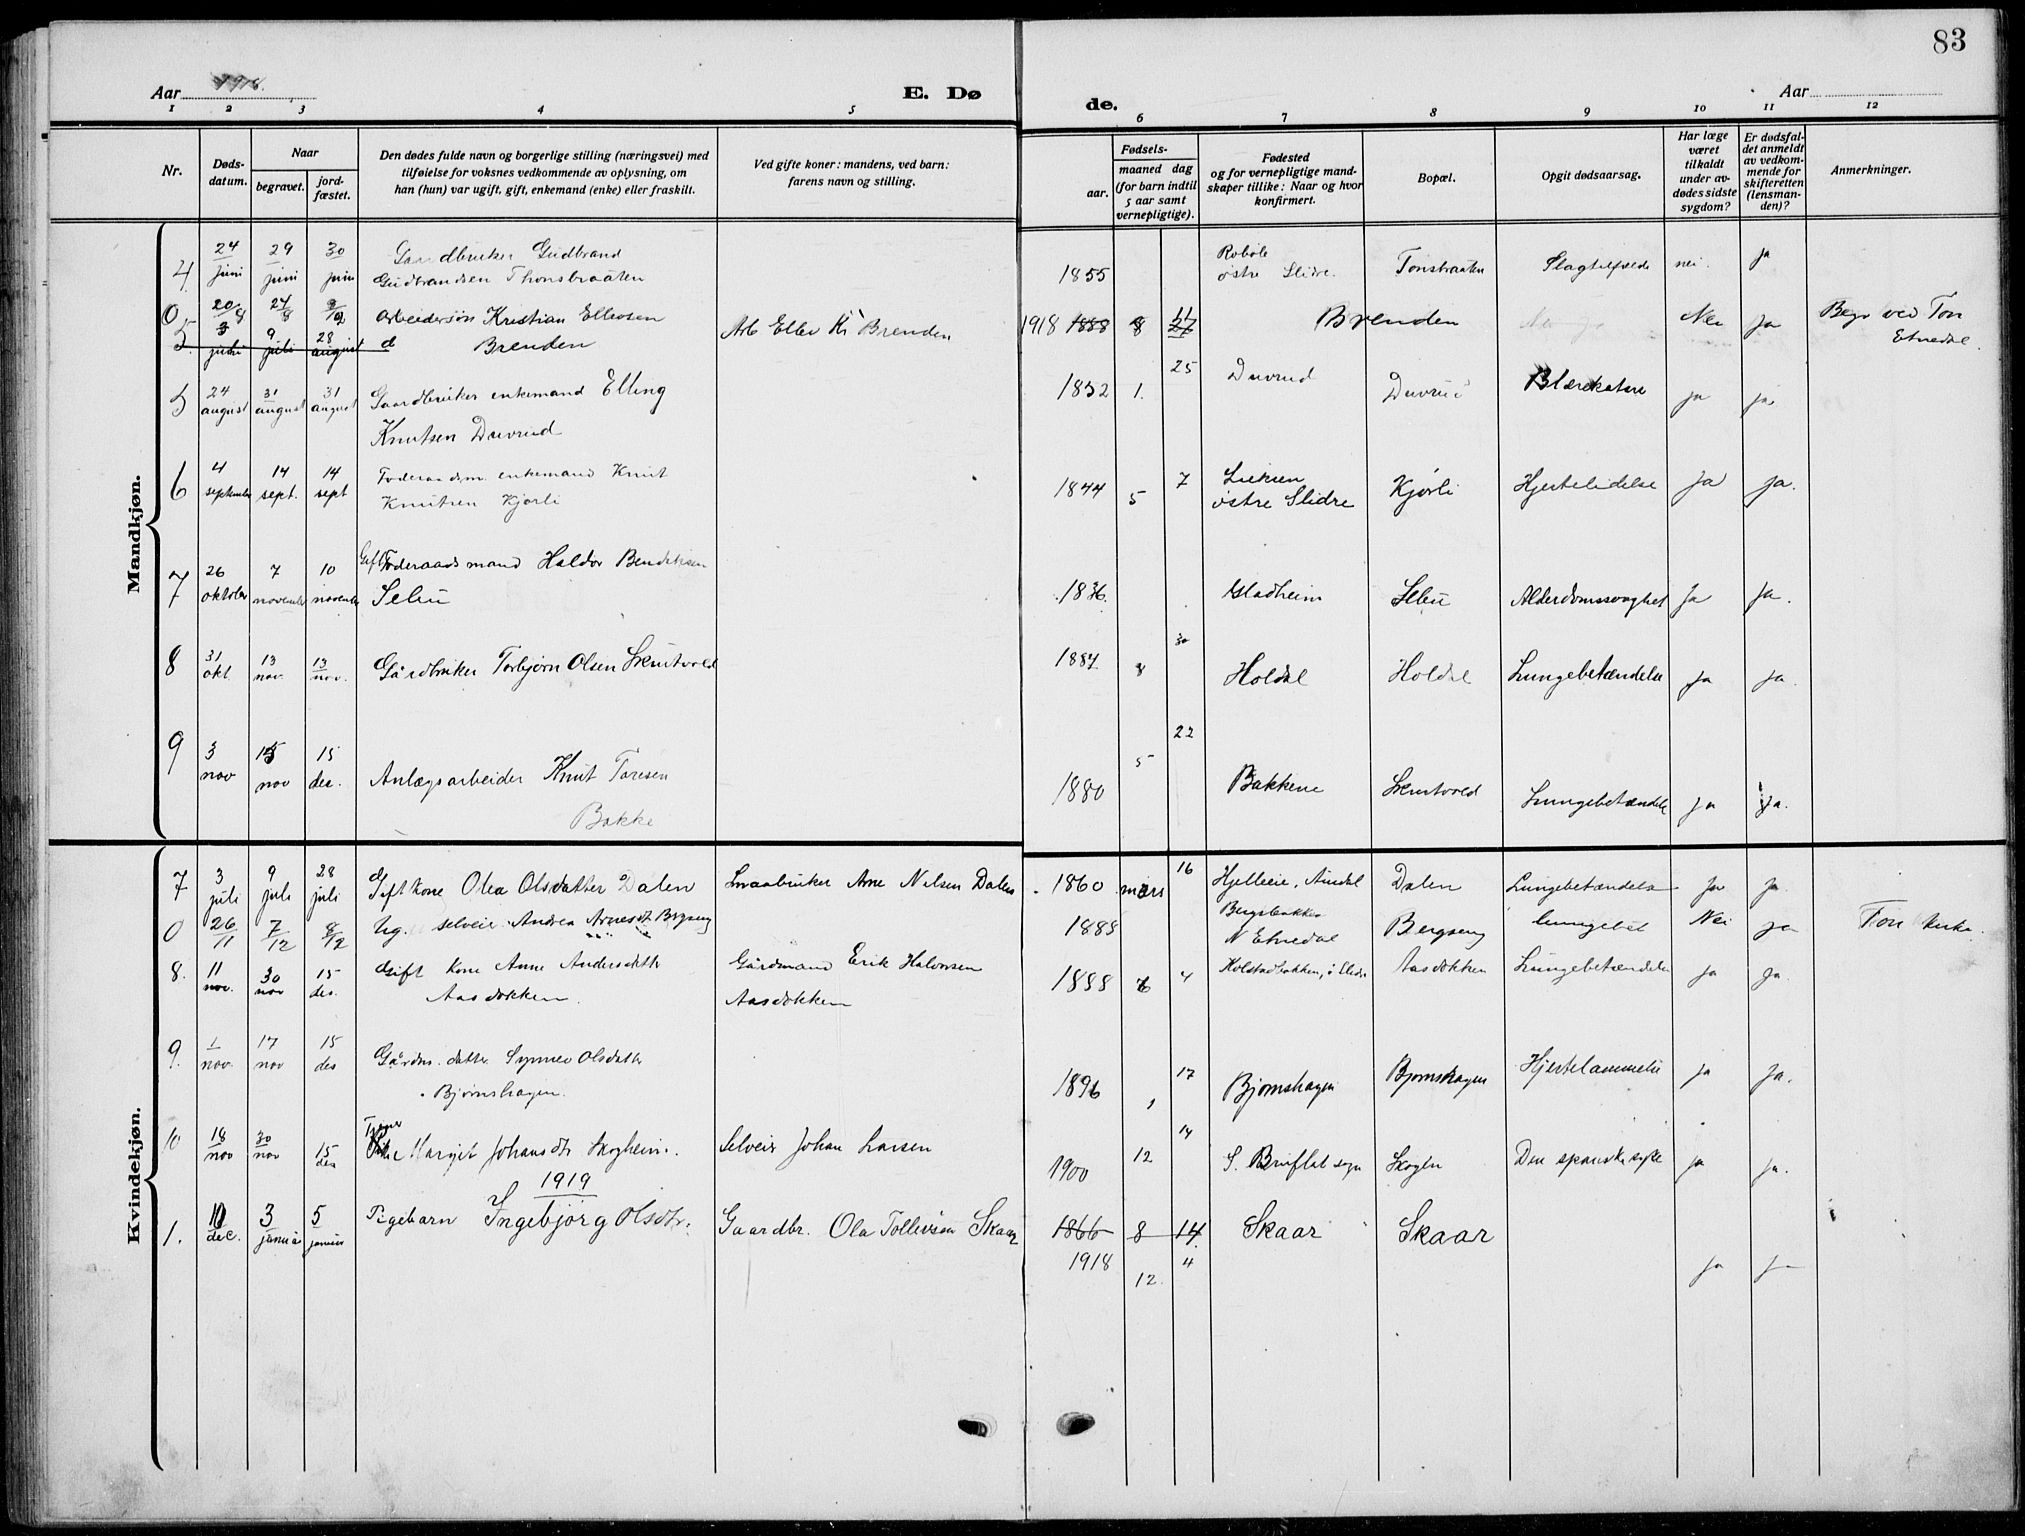 83
Aar 1918. E. Dø de. Aar
1 2 3 4 5 6 7 8 9 10 11 12
Nr.
Døds-
datum.
Naar
begravet.
jord-
fæstet.
Den dødes fulde navn og borgerlige stilling (næringsvei) med
tilføielse for voksnes vedkommende av oplysning, om
han (hun) var ugift, gift, enkemand (enke) eller fraskilt.
Ved gifte koner: mandens, ved barn:
farens navn og stilling.
Fødsels-
aar.
maaned dag
(for barn indtil
5 aar samt
vernepligtige).
Fødested
og for vernepligtige mand-
skaper tillike: Naar og hvor
konfirmert.
Bopæl.
Opgit dødsaarsag.
Har læge
været
tilkaldt
under av-
dødes sidste
sygdom?
Er dødsfal-
det anmeldt
av vedkom-
mende for
skifteretten
(lensman-
den)?
Anmerkninger.
Mandkjøn.
4. 24 juni 29 juni 30 juni Gaardbruker Gudbrand
Gudbrandsen Thonsbraaten 1855 Robøle østre Slidre. Tonsbraaten Slagtilfælde nei. ja
0 20/8 24/8 Arbeidersøn Kristian Ellevsen
Brenden Arb Ellev Brenden 1918 1888 8 11 Brenden Nei ja Begr ved Ton
Etnedal.
5. 3 juli 9 juli 28 august
5 24 august 31 august 31 august Gaardbruker enkemand Elling
Knutsen Duvrud 1852 1. 25 Duvrud Duvrud Blærekatar ja ja.
6 4 september 14 sept. 14 sept Foderaadsm. enkemand Knut
Knutsen Kjørli 1844 5 7 østre Slidre Kjørli Hjertelidelse Ja ja.
7 26 oktober 7 november 10 november Gift Foderaadsmand Haldor Bendiksen
Selu 1836. Gladheim Selu Alderdomssvaghet Ja Ja.
8 31 okt. 13 nov. 13 nov. Gårdbruker Torbjørn Olsen Skrutvold 1887 8 30 Holdal Holdal Lungebetændelse ja ja.
9 3 nov 15 nov 15 des. Anlægsarbeider Knut Toresen
Bakke 1880 5 22 Bakkene Skrutvold Lungebetændelse ja ja.
Kvindekjøn.
7 3 juli 9 juli 28 juli Gift kone Olea Olsdatter Dalen Smaabruker Arne Nilsen Dalen 1860 mars 16 Hjelleeie, Aurdal Dalen Lungebetændelse Ja Ja.
0 26/11 7/12 8/12 Ug. selveier Andrea Arnesdt. Bergseng 1885 Bergsbakken
N Etnedal Bergseng lungebet Nei ja Ton kirke.
8. 11 nov. 30 nov 15 des. Gift Kone Anne Andersdatter
Aasdokken. Gårdmand Erik Halvorsen
Aasdokken 1888 6 4 Holstadbakken, i Slidre Aasdokken Lungebetændelse ja Ja.
9. 1 nov. 17 nov 15 des Gårdm. datter Synnev Olsdatter
Bjørnshagen. 1896 17 Bjørnshagen Bjørnshagen Hjertelammelse ja Ja.
10 18 nov 30 nov 15 des Pike Margit Johansdtr Skogheim. Selveier Johan Larsen 1900 12 14 S. Bruflat sogn Skogen Den spanske syke ja ja.
1919
1. 10 dec. 3 januar 5 januar Pigebarn Ingebjørg Olsdtr. Gaardbr. Ola Tollevsen Skaar 1866 8 14 Skaar Skaar
1918 12. 4 ja ja